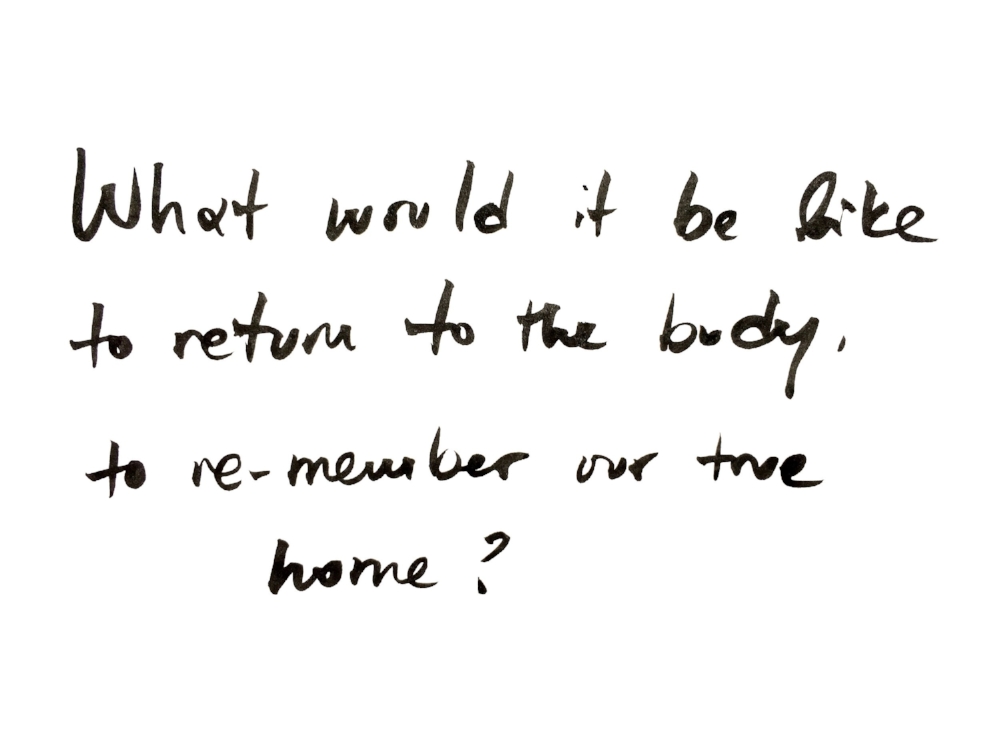 What would it be like
to return to the body,
to re-member our true
home?